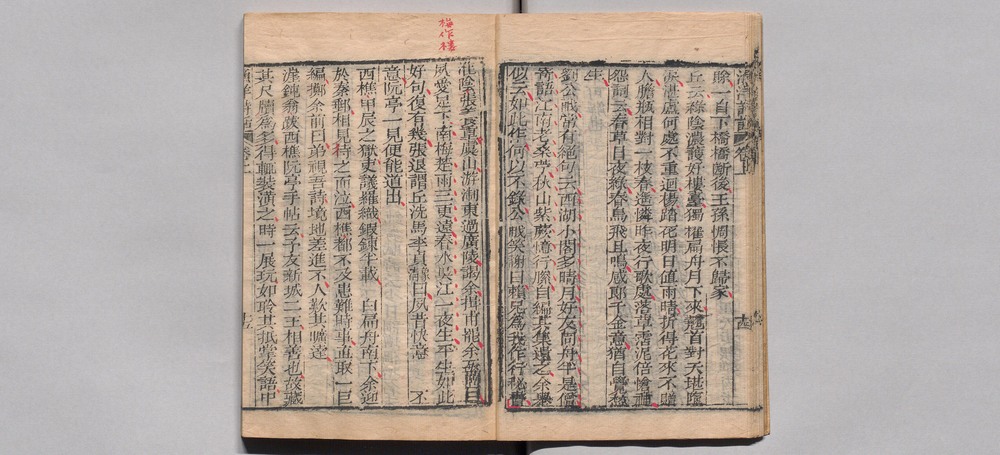 漁洋詩話 卷上
賒一自下橋橋斷後王孫惆悵不歸家
丘云綠陰濃護好樓臺獨櫂扁舟月下來鷁首對天堪
處何處不重迴楊踏花明日直雨時折得花來不贈
人膽瓶相對一枝春遙憐昨夜行歌處落草霑泥倍愴神
怨詞云春草自又綠春鳥飛且鳴感郎千金意猶自覺愁
生
劉公㦷常有絕句云西湖小閣多時月好友同舟半是僧
奇語江南老桑苧秋山紫蕨憶行縢自編其集遺之余舉
似云如此作何以不錄公㦷笑謝曰賴兄為我作行秘書
十四
梅作樓
淮陰張 重虞山游淛東過廣陵謁余 余 曰
夙愛足下南梅楚雨三更遠春水吳江一夜生平生如此
好句復有幾張退謂丘洗馬季貞曰夙昔快意 不
意阮亭一見便能道出
西樵甲辰之獄吏議羅織鍛鍊半載 白扁舟南下余迎
於秦郵相見持之而泣西樵都不及患難時事直取一巨
編擲余前曰弟視吾詩境地差進不人歎其曠達
淮鈍翁 西樵阮亭手帖云子友新城二王相善也故藏
其尺牘為多得輒裝潢之時一展玩如聆其抵掌笑語中
漁洋詩話 卷上